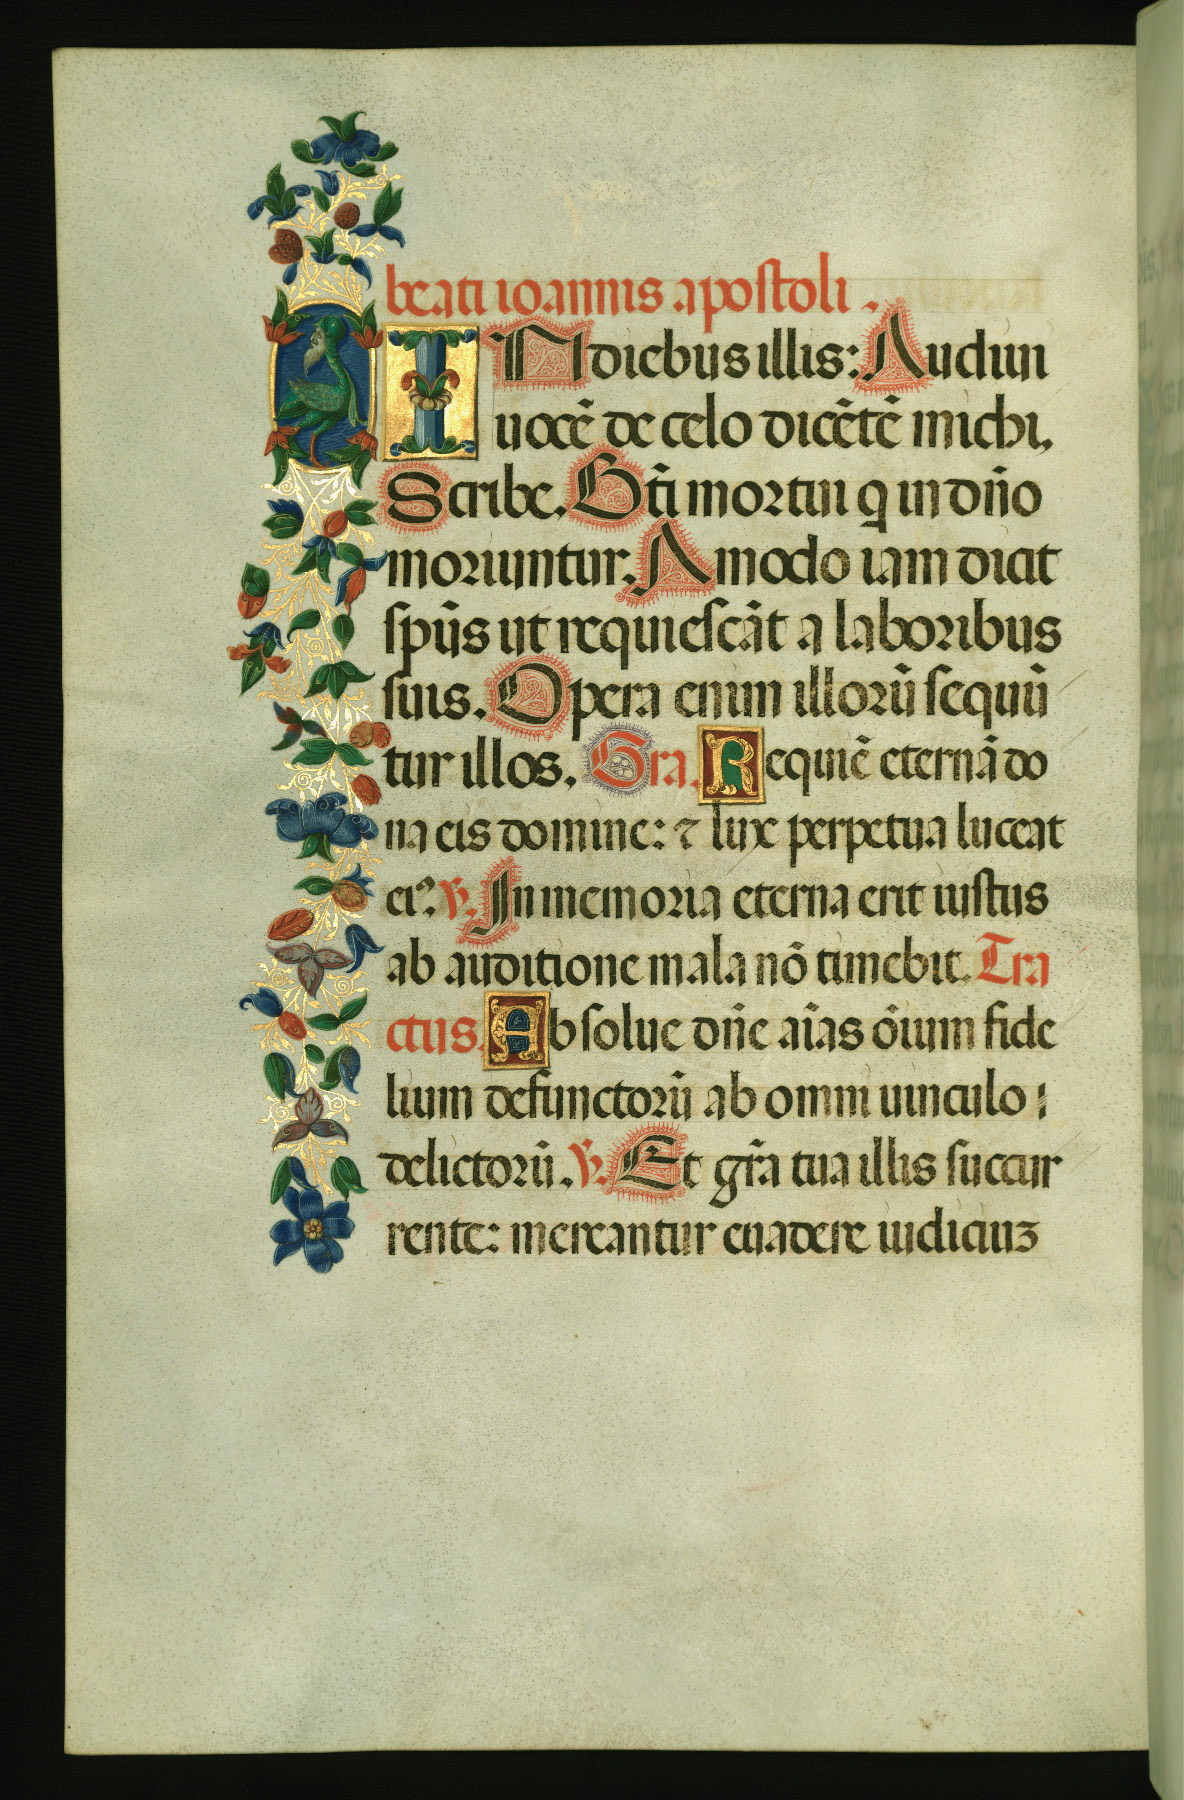 beati ioannis apostoli.
IN diebus illis: Audiui
uocē de celo dicētē michi.
Scribe. Bt̄i mortui q̄ in dn̄o
moriuntur. Amodo iam dicit
sp̄us ut requiescāt a laboribus
suis. Opera enim illorū sequū
tur illos. Gra. Requiē eternā do
na eis domine: ⁊ lux perpetua luceat
ei⁹. ℣. In memoria eterna erit iustus
ab auditione mala nō timebit. Tra
ctus. Absolue dn̄e aīas ōium fide
lium defunctorū ab omni uinculo :
delictorū. ℣. Et gr̄a tua illis succur
rente: mereantur euadere iudiciuꝫ